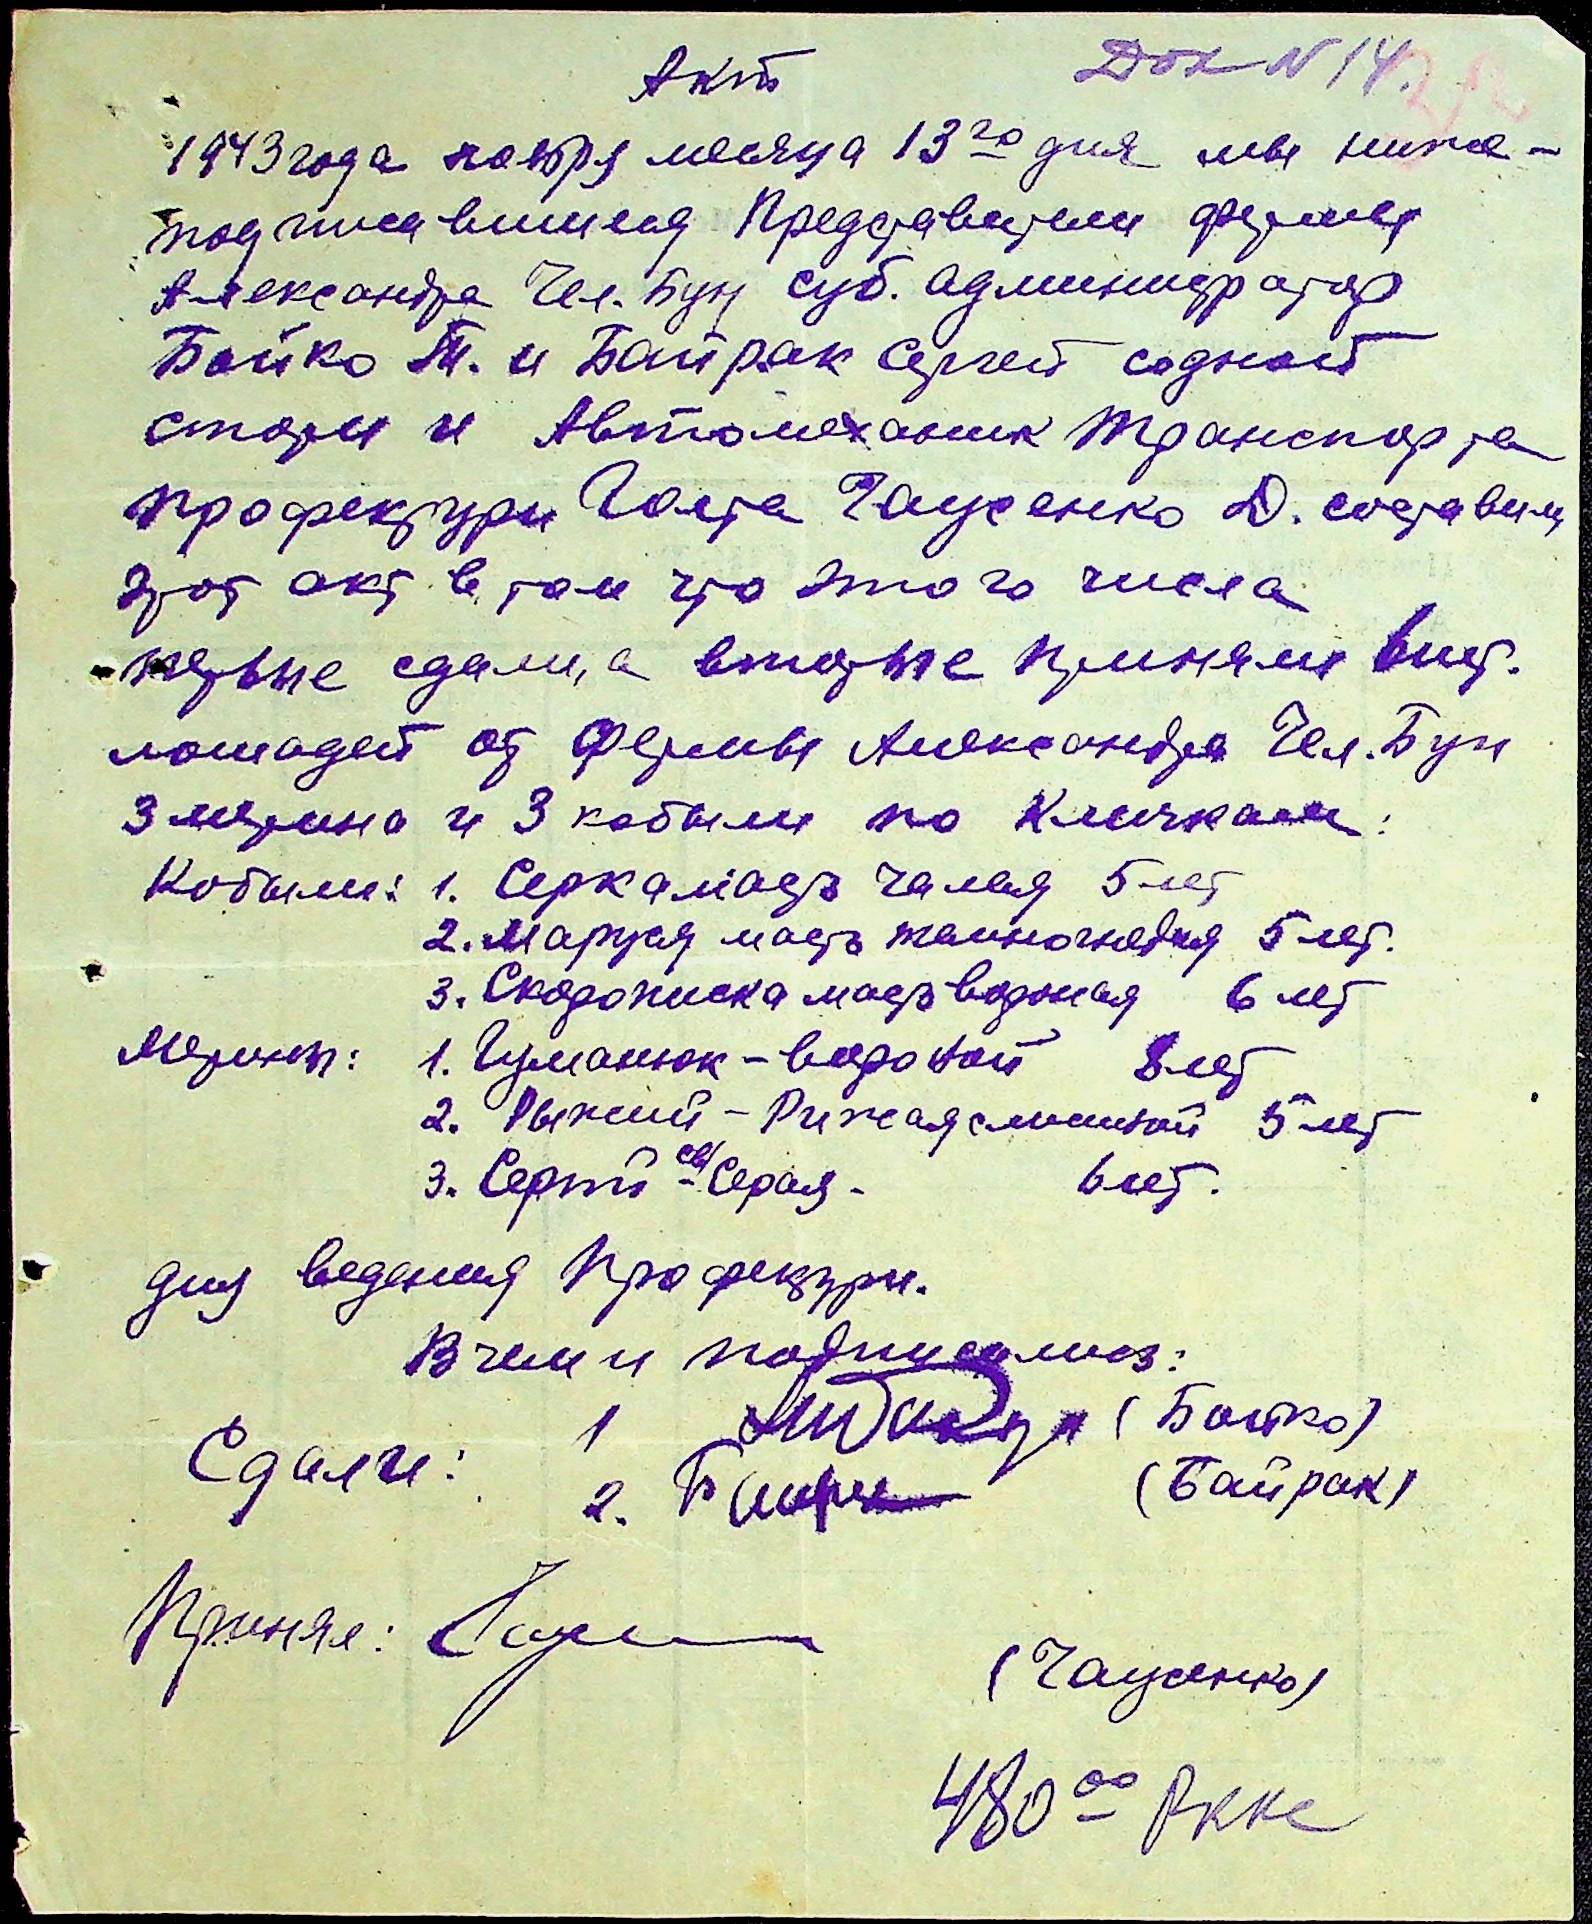 Док N 14.
Акт
1943 года ноября месяца 13го дня мы ниже-
подписавшиеся Представители фермы
Александра Чел. Бун суб. администратор
Бойко М. и Байрак Сергей содной
сторы и Автомеханик Транспорта
Профектуры Голта Чаусенко Д. составили
этот акт в том что этого числа
первые сдали, а вторые приняли 6 шт.
лошадей от фермы Александра Чел. Бун
3 мерина и 3 кобылы по кличкам:
Кобылы: 1. Серка масть чалая 5 лет
2. Маруся масть темногнедая 5 лет.
3. Скорописка масть вороная 6 лет
Мерины: 1. Чуманюк - вороной 8 лет
2. Рыжий - Рижая слысиной 5 лет
3. Серый - св/Серая - 6 лет.
для ведения Профектуры.
В чем и подписались:
Сдали: 1 (Бойко)
2. (Байрак)
Принял: (Чаусенко)
480 00 Ркке